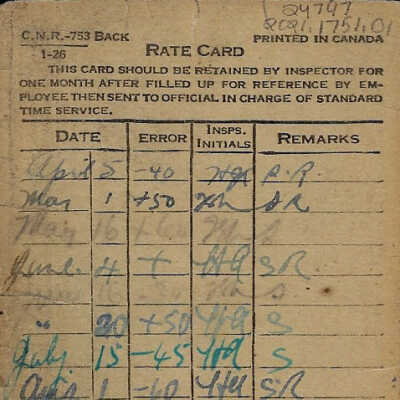 24797
2021.1751.01
C.N.R.-753 BACK
1-26
PRINTED IN CANADA
RATE CARD
THIS CARD SHOULD BE RETAINED BY INSPECTOR FOR
ONE MONTH AFTER FILLED UP FOR REFERENCE BY EM-
PLOYEE THEN SENT TO OFFICIAL IN CHARGE OF STANDARD
TIME SERVICE.
DATE ERROR INSPS. INITIALS REMARKS
April 5 -40 R.R.
May 1 +50 SR
May 16 + S
June 4 + HQ SR
" 20 +50 HQ S
July 15 -45 HQ S
1 -40 HQ SR